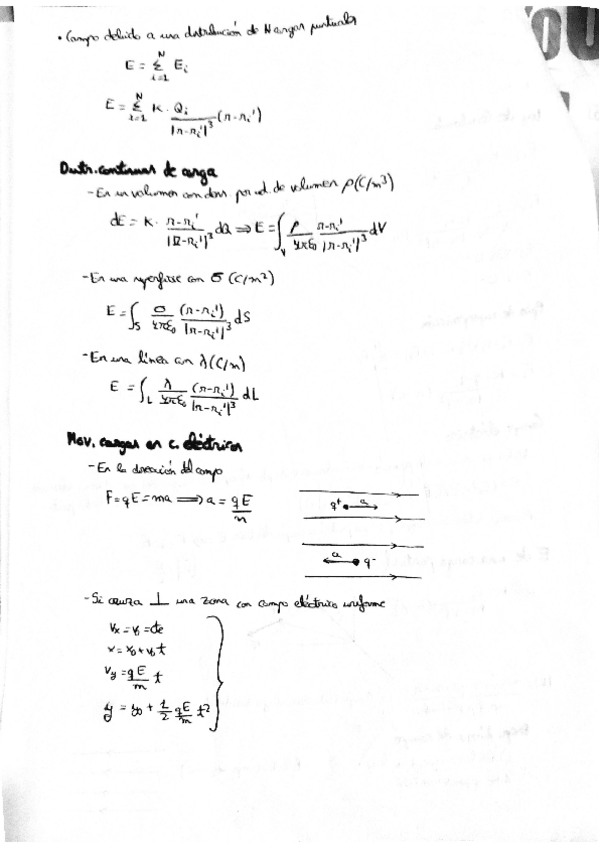 • Campo debido a una distribución de N cargas puntuales
E = Σ_{i=1}^{N} E_i
E = Σ_{i=1}^{N} K · Q_i / |r-r_i'|^3 (r-r_i')
Distr. continuas de carga
- En un volumen con dens. por ud. de volumen ρ(C/m^3)
dE = K · (r-r_i') / |r-r_i'|^3 dQ ⇒ E = ∫_V ρ/(4πε_0) (r-r_i')/|r-r_i'|^3 dV
- En una superficie con σ (C/m^2)
E = ∫_S σ/(4πε_0) (r-r_i')/|r-r_i'|^3 dS
- En una línea con λ(C/m)
E = ∫_L λ/(4πε_0) (r-r_i')/|r-r_i'|^3 dL
Mov. cargas en c. eléctricos
- En la dirección del campo
F = qE = ma ⟹ a = qE/m
q+ a
a q-
- Si cruza ⊥ una zona con campo eléctrico uniforme
v_x = v_0 = cte
x = x_0 + v_0 t
v_y = qE/m t
y = y_0 + 1/2 qE/m t^2